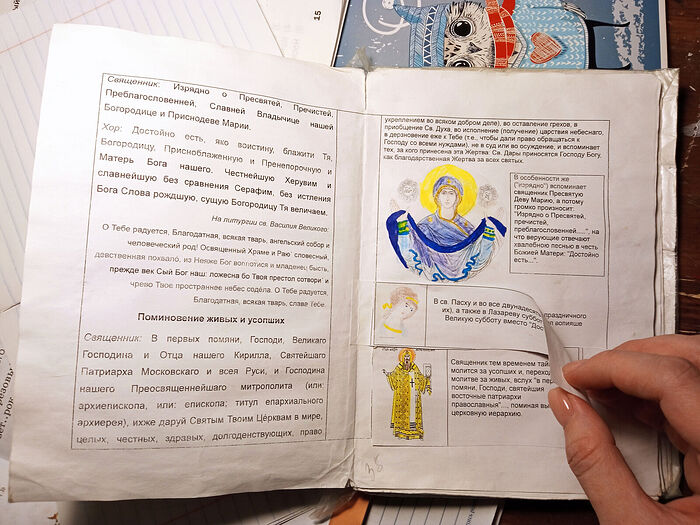 15
Священник: Изрядно о Пресвятей, Пречистей,
Преблагословенней, Славней Владычице нашей
Богородице и Приснодеве Марии.
Хор: Достойно есть, яко воистину, блажити Тя,
Богородицу, Присноблаженную и Пренепорочную и
Матерь Бога нашего. Честнейшую Херувим и
славнейшую без сравнения Серафим, без истления
Бога Слова рождшую, сущую Богородицу Тя величаем.
На литургии св. Василия Великого:
О Тебе радуется, Благодатная, всякая тварь, ангельский собор и
человеческий род! Освященный Храме и Раю словесный,
девственная похвало, из Неяже Бог воплотися и младенец бысть,
прежде век Сый Бог наш: ложесна бо Твоя престол сотвори и
чрево Твое пространнее небес содела. О Тебе радуется,
Благодатная, всякая тварь, слава Тебе.
Поминовение живых и усопших
Священник: В первых помяни, Господи, Великаго
Господина и Отца нашего Кирилла, Святейшаго
Патриарха Московскаго и всея Руси, и Господина
нашего Преосвященнейшего митрополита (или:
архиепископа, или: епископа; титул епархиального
архиерея), ихже даруй Святым Твоим Церквам в мире,
целых, честных, здравых, долгоденствующих, право
укреплением во всяком добром деле), во оставление грехов, в
приобщение Св. Духа, во исполнение (получение) царствия небеснаго,
в дерзновение еже к Тебе (т.е., чтобы дали право обращаться к
Господу со всеми нуждами), не в суд или во осуждение, и вспоминает
тех, за кого принесена эта Жертва. Св. Дары приносятся Господу Богу,
как благодарственная Жертва за всех святых.
В особенности же
("изрядно") вспоминает
священник Пресвятую
Деву Марию, а потому
громко произносит:
"Изрядно о Пресвятей,
пречистей,
преблагословенней....", на
что верующие отвечают
хвалебною песнью в честь
Божией Матери: "Достойно
есть...".
В св. Пасху и во все двунадесят
их), а также в Лазареву суббо
Великую субботу вместо "Дос
праздничного
вопияше
Священник тем временем тай
молится за усопших и, переход
молитве за живых, вслух "в пе
помяни, Господи, святейшия
восточные патриархи
православныя"..., поминая вы
церковную иерархию.